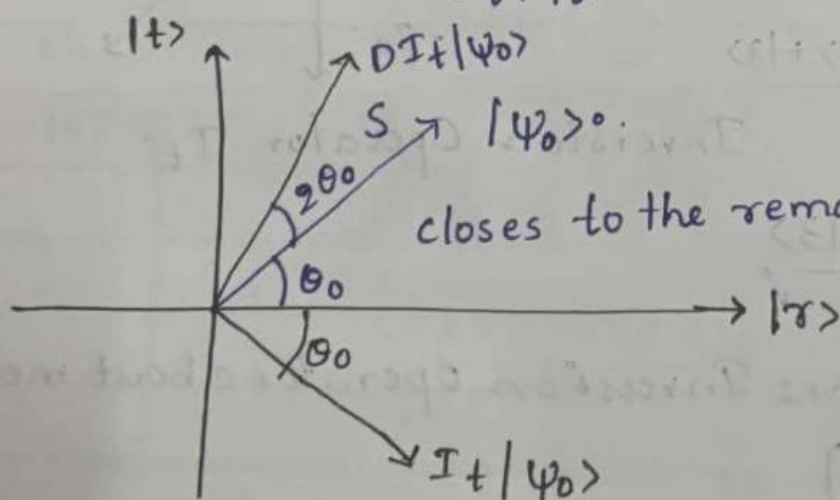 |t>
DIt|ψ0>
S |ψ0>
2θ0
closes to the
θ0
|r>
θ0
It|ψ0>